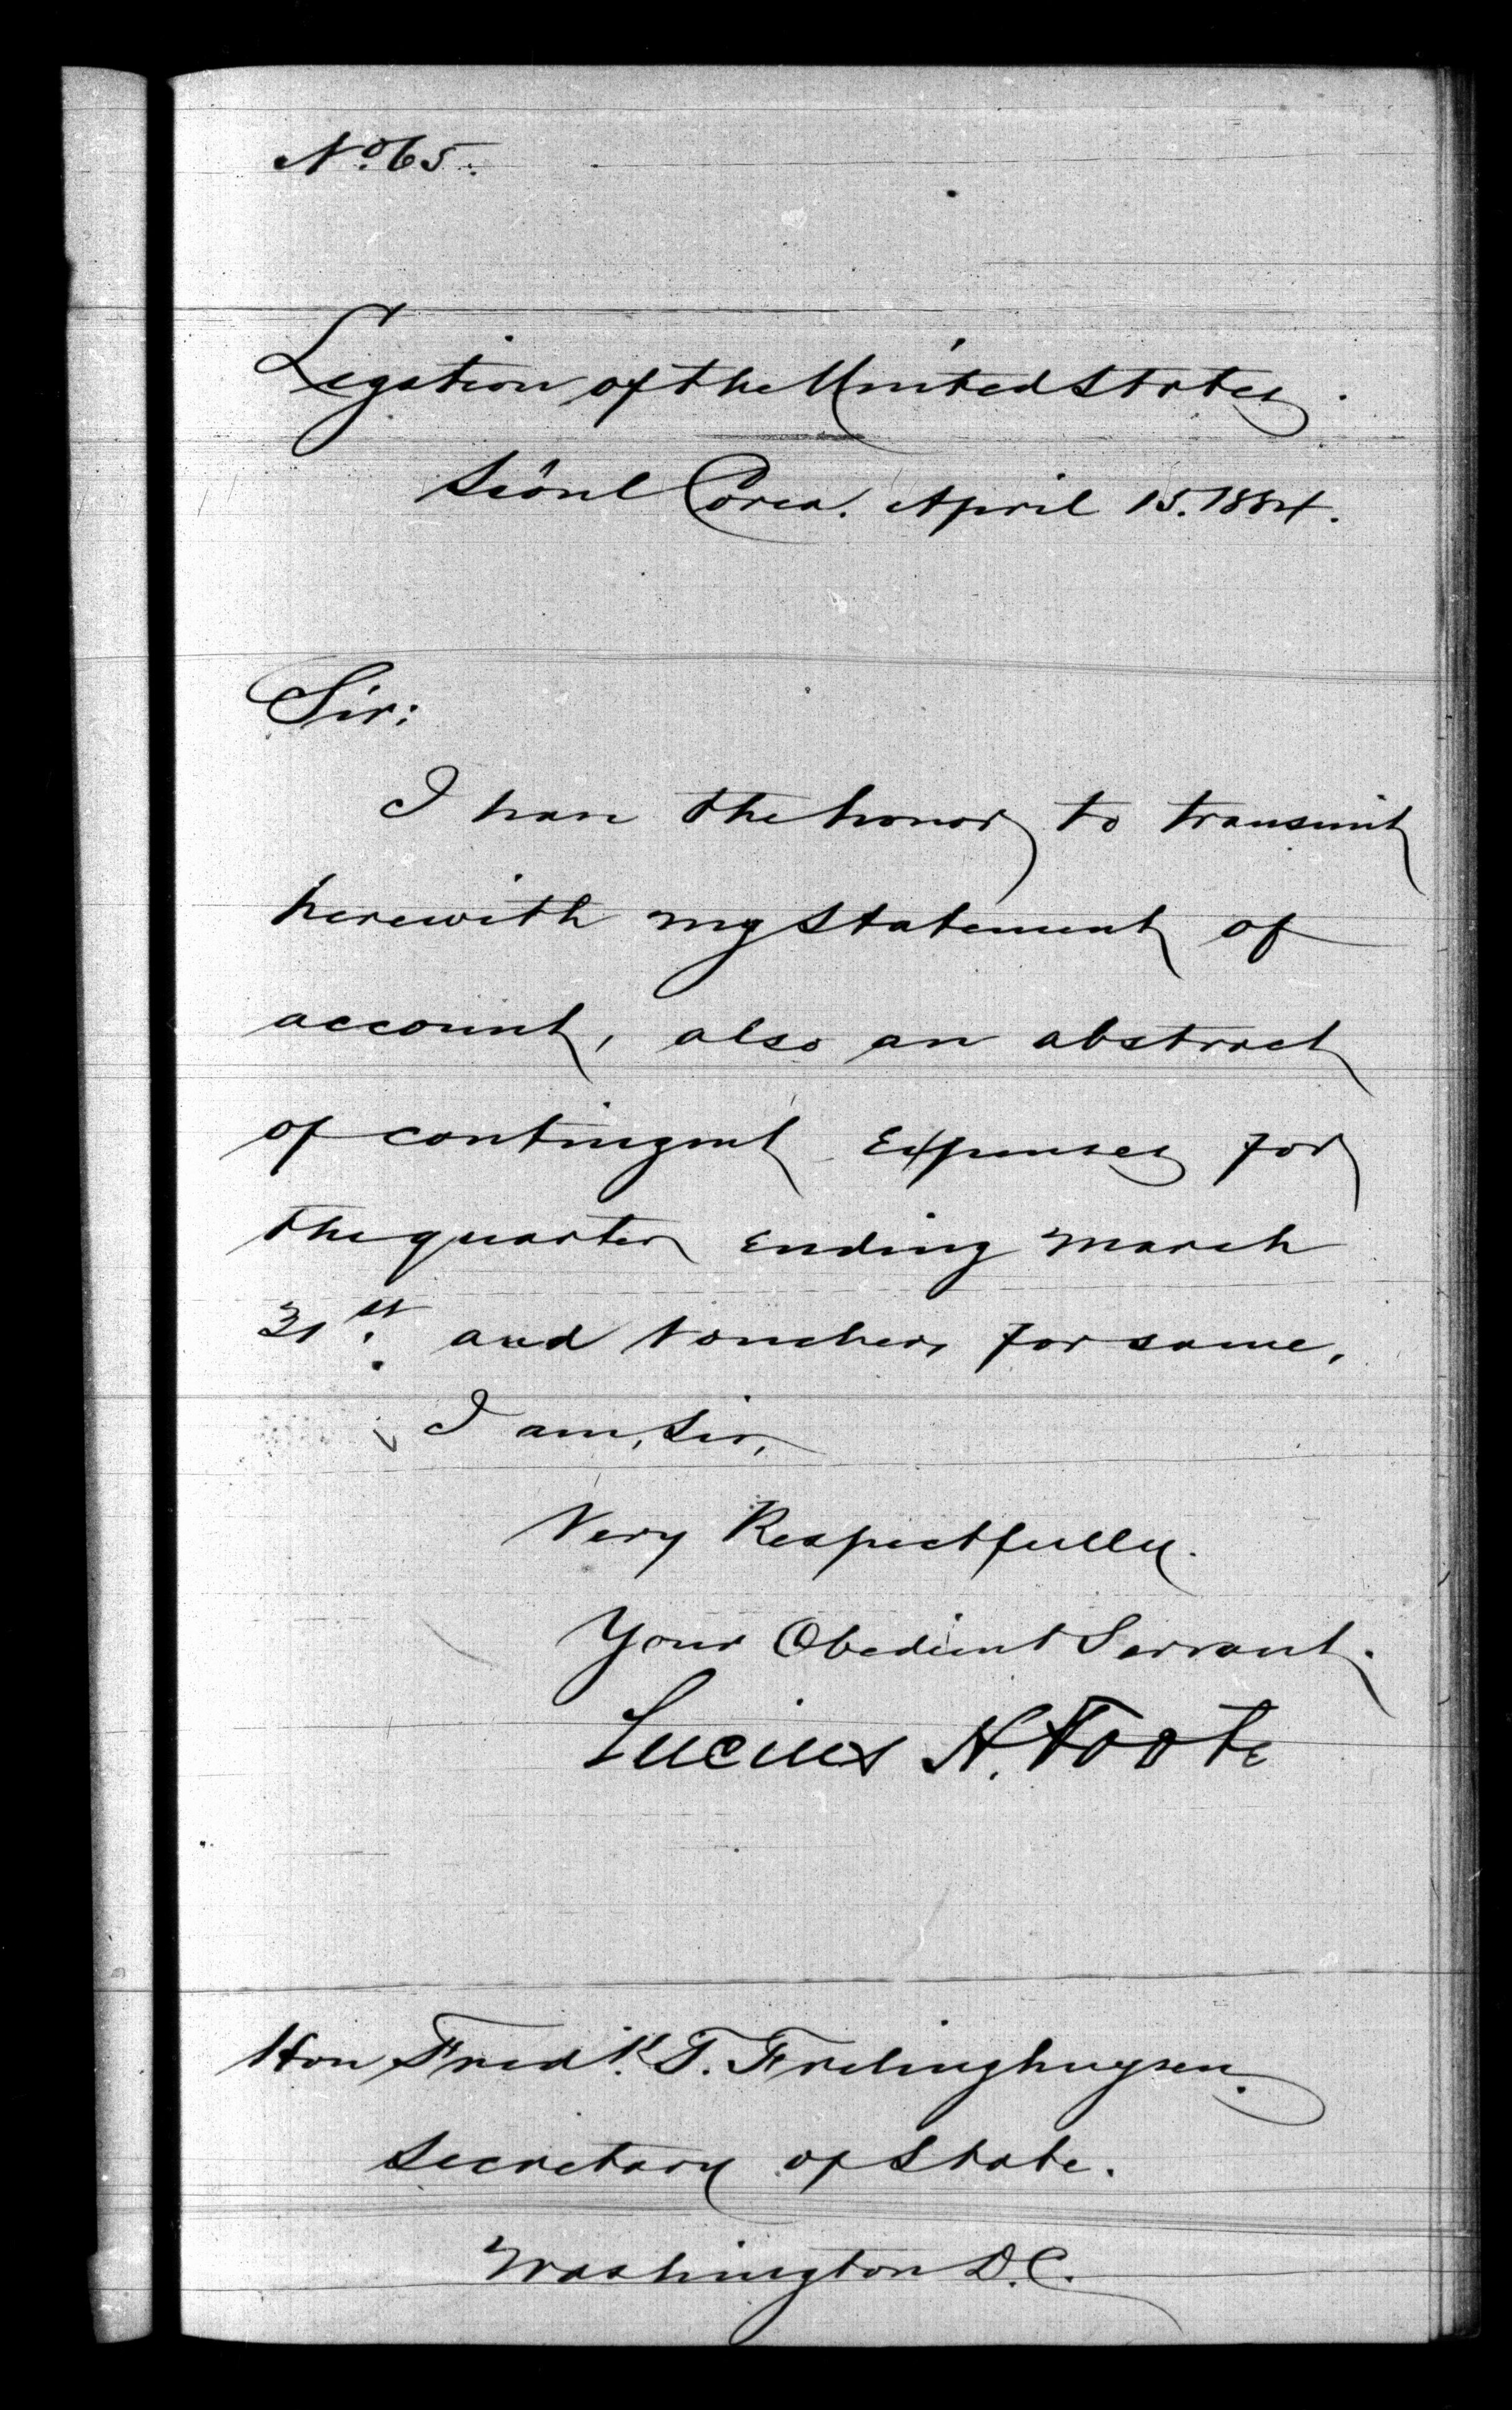 No. 65.
Legation of the United States.
Séoul Corea. April 15. 1884.
Sir:
I have the honor to transmit
herewith my statement of
account, also an abstract
of contingent Expenses for
the quarter Ending March
31st. and Vouchers for same,
I am, Sir,
Very Respectfully.
Your Obedient Servant.
Lucius H. Foote
Hon Fredk. T. Frelinghuysen.
Secretary of State.
Washington D.C.